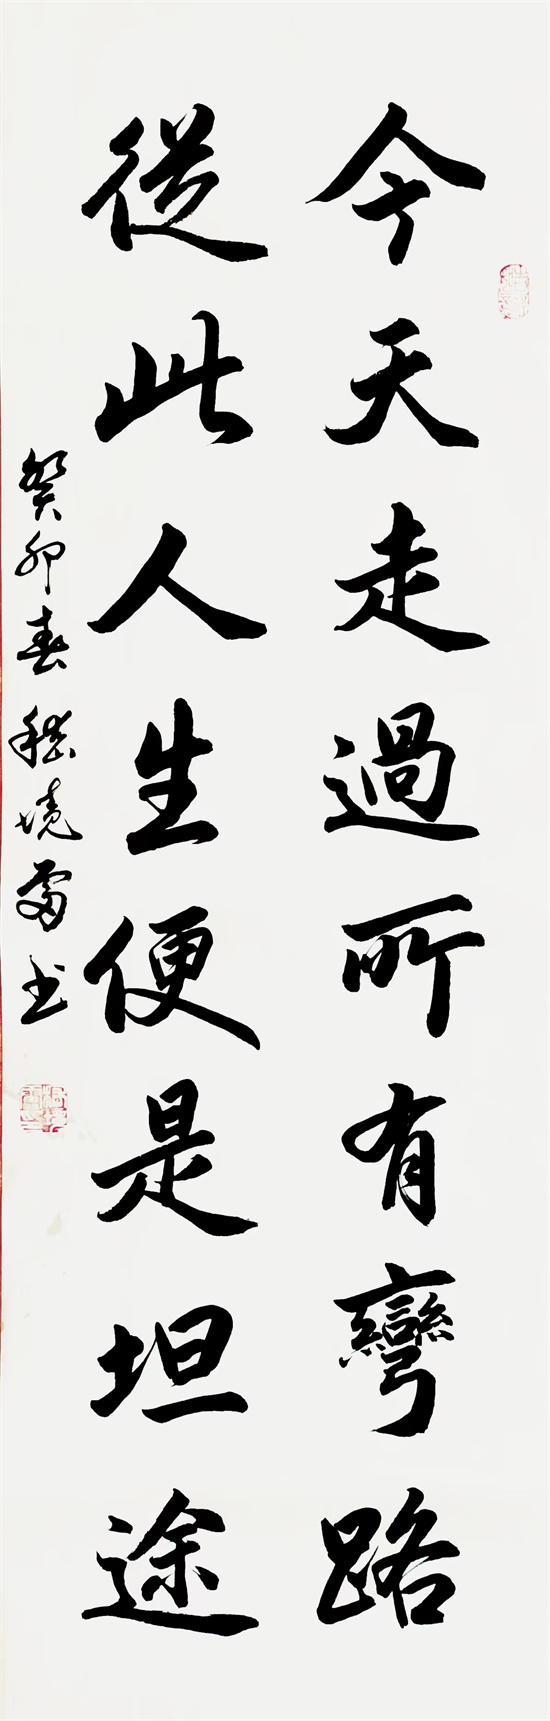 今天走過所有彎路
從此人生便是坦途
癸卯春嵇境雷书